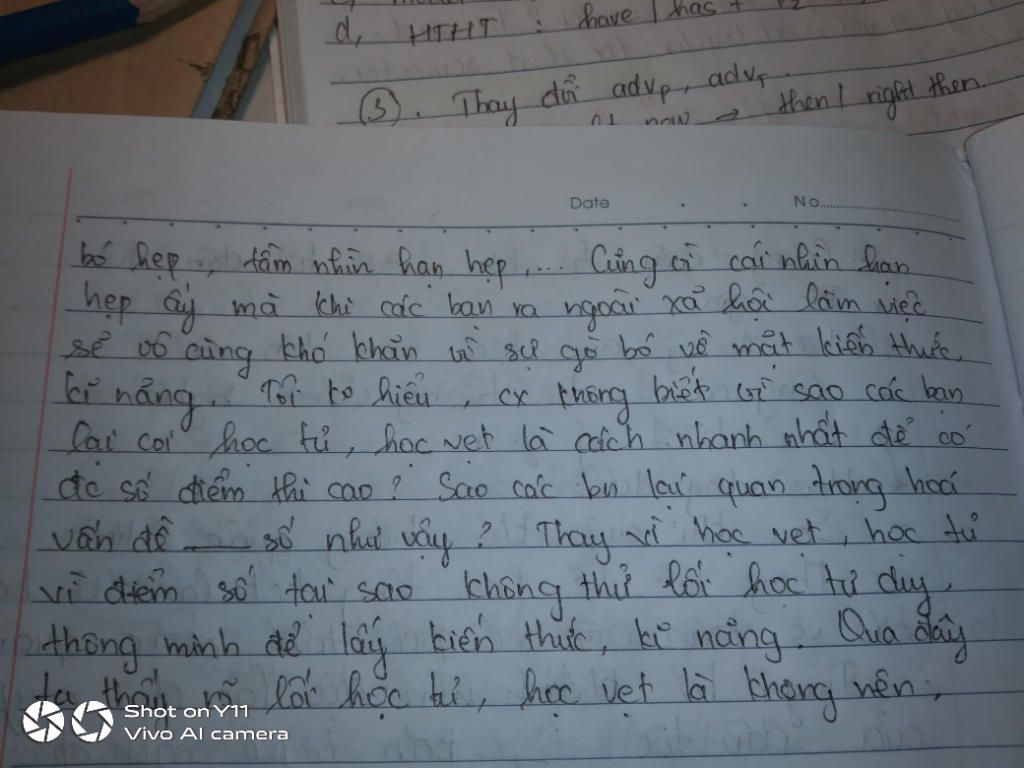 d, HTHT : have / has + P2
(3). Thay đổi advp, advT.
at now → then / right then.
Date . . No
bó hẹp, tầm nhìn hạn hẹp,... Cũng vì cái nhìn hạn
hẹp ấy mà khi các bạn ra ngoài xã hội làm việc
sẽ vô cùng khó khăn vì sự gò bó về mặt kiến thức,
kĩ năng. Tôi ko hiểu, cx không biết vì sao các bạn
lại coi học tủ, học vẹt là cách nhanh nhất để có
đc số điểm thi cao? Sao các bn lại quan trọng hoá
vấn đề số như vậy? Thay vì học vẹt, học tủ
vì điểm số tại sao không thử lối học tư duy,
thông minh để lấy kiến thức, kĩ năng. Qua đây
ta thấy rõ lối học tủ, học vẹt là không nên,
Shot on Y11
Vivo AI camera